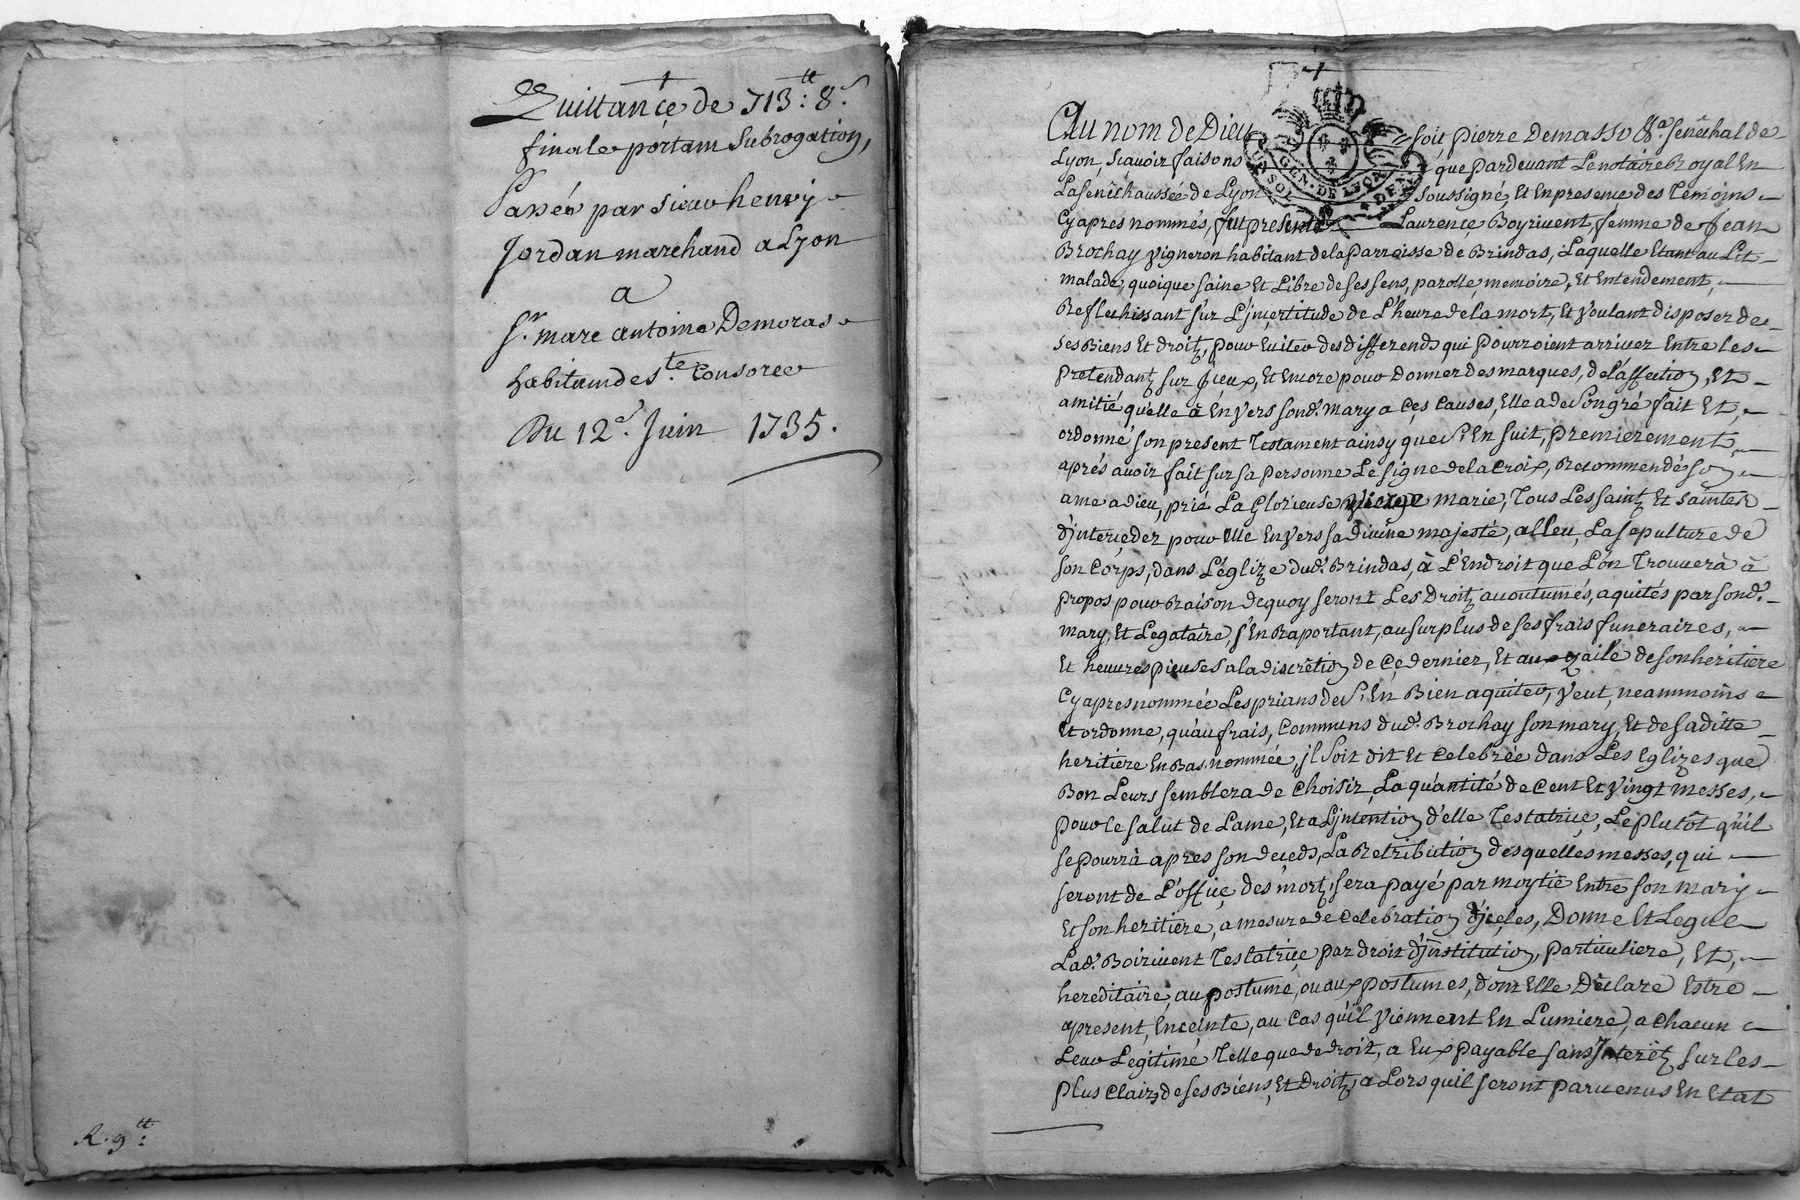 Quittance de 713lt: 8s
finale portant subrogation,
Passée par sieur henry
Jordan marchand a Lyon
a
Sr. marc antoine Demoras
habitant de ste Consorce
Du 12e. Juin 1735.
R. 9lt:
Au nom de Dieu soit pierre Demasso Sénêchal de
Lyon, scavoir faisons que pardevant Lenotaire Royal En
La sénêchaussée de Lyon soussigné, Et En presence des Témoins
Cyaprés nommés, fut presente Laurence Boyrivent, femme de Jean
Brochay vigneron habitant dela parroisse de Brindas, Laquelle Etant au Lit
malade, quoique saine Et Libre de ses sens, parolle, memoire, Et Entendement,
Reflechissant sur L'jncertitude de L'heure de la mort, Et voulant disposer de
ses Biens Et droitz, pour Eviter des differends qui pourroient arriver Entre les
pretendantz sur jceux, Et Encore pour donner des marques, de l'affection, Et
amitié qu'elle à Envers sond. mary a ces causes, Elle a de son gré fait Et,
ordonné son present Testament ainsy que s'En suit, premierement,
aprés avoir fait sur sa personne Le signe de la croix, Recommendé son
ame a dieu, prié La Glorieuse vierge marie, Tous Les saintz Et saintes
d'jnterceder pour Elle Envers sa divine majesté, alleu, La sepulture de
son Corps, dans L'églize dud. Brindas, à L'Endroit que L'on Trouvera à
propos pour Raison dequoy seront Les Droitz accoutumés, aquités par sond.
mary, Et Legataire, s'En Raportant, au surplus de ses frais funeraires,
Et heuvres pieuses a la discrétion de ce dernier, Et au de son héritiere
Cyapres nommée Les prians de s'En Bien aquiter, veut, neammoins
Et ordonne, qu'au frais, Communs dud. Brochay son mary, Et de sa ditte
heritiere En Bas nommée, jl soit dit Et celebrée dans Les Eglizes que
Bon Leurs semblera de choisir, La quantité de cent Et vingt messes,
pour le salut de Lame, Et a L'jntention d'elle Testatrice, Le plutôt qu'il
se pourrà apres son deceds, La Retribution desquelles messes, qui
seront de L'office des mortz, sera payé par moytié Entre son mary
Et son heritiere, a mesure de celebration d'jcelles, Donne Et Legue
Lad. Boirivent Testatrice par droit d'jnstitution, particuliere, Et,
hereditaire, au postume, ou aux postumes, dont Elle déclare Estre
apresent, Enceinte, au cas qu'il viennent En Lumiere, a chacun
Leur Legitime Telle que de droit, a Eux payable sans Interêtz sur les
plus clairs de ses Biens, Et Droitz, a Lors qu'il seront parvenus En Etat